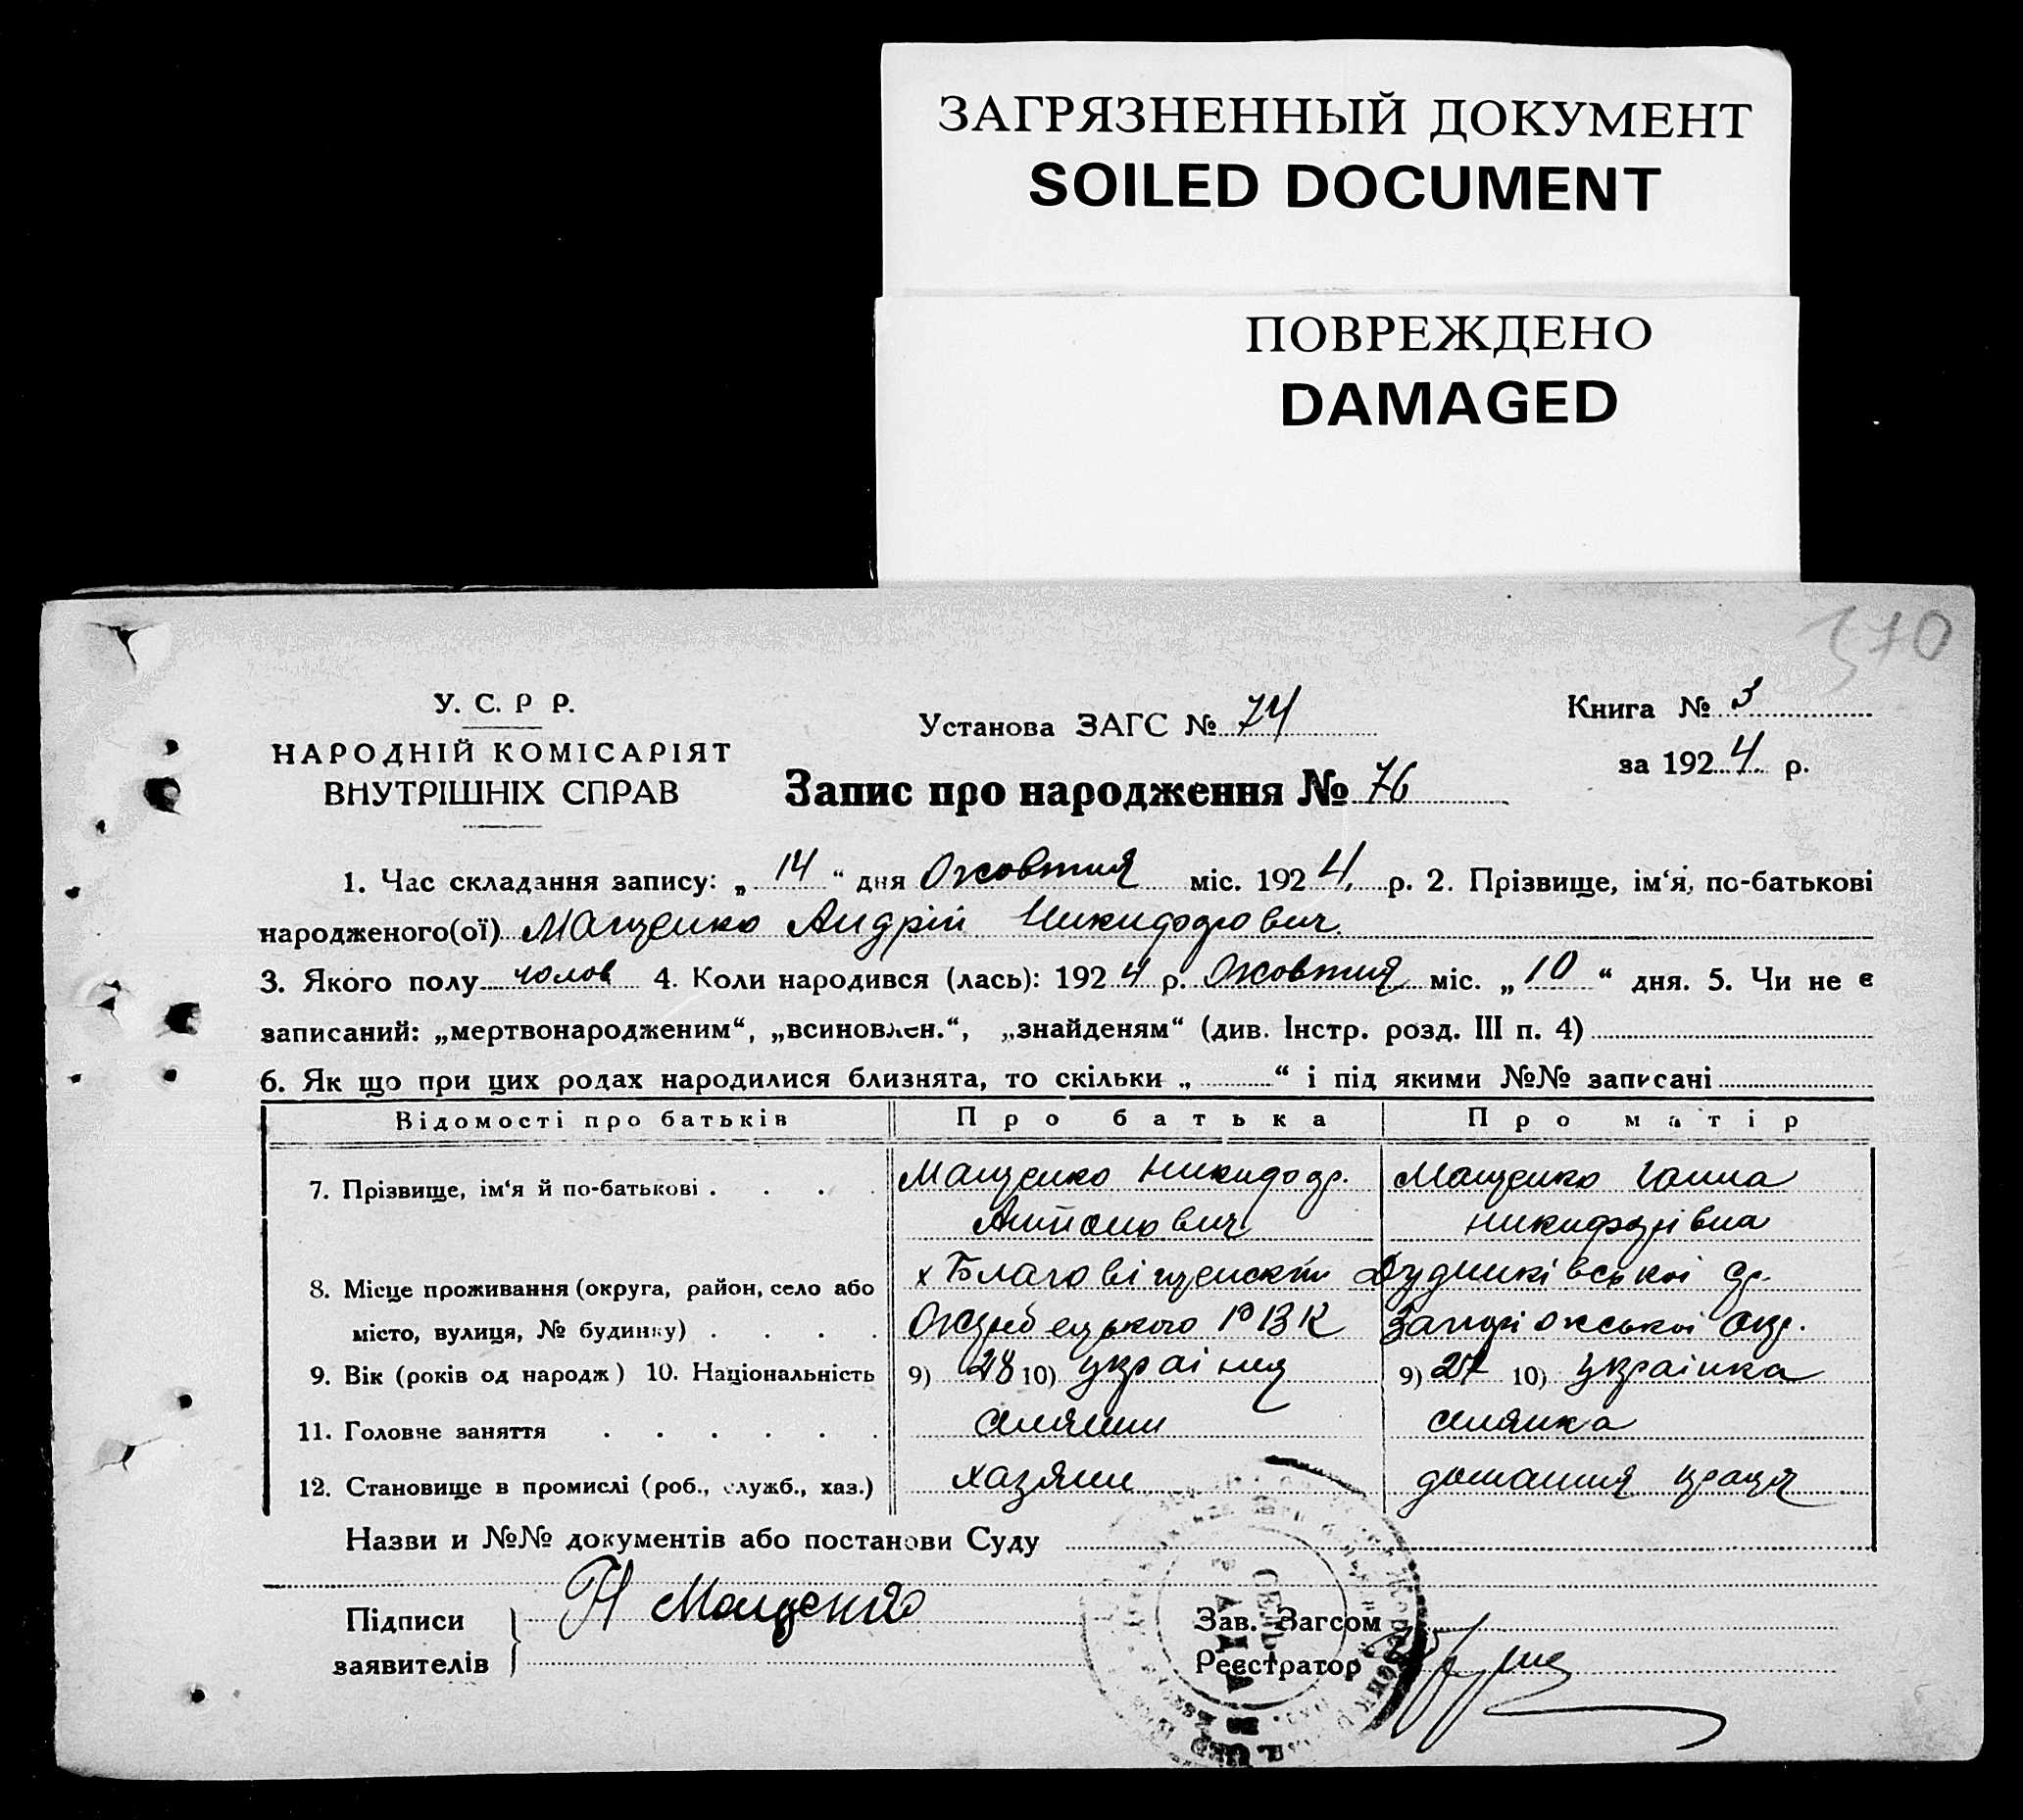 ЗАГРЯЗНЕННЫЙ ДОКУМЕНТ
SOILED DOCUMENT
ПОВРЕЖДЕНО
DAMAGED
370
У. С. Р Р.
НАРОДНІЙ КОМІСАРІЯТ
ВНУТРІШНІХ СПРАВ
Установа ЗАГС № 74
Книга № 3
за 1924 р.
Запис про народження № 76
1. Час складання запису: „ 14 “ дня Ожовтня міс. 1924 р. 2. Прізвище, ім‘я, по-батькові
народженого(ої) Мащенко Андрій Никифорович
3. Якого полу чолов 4. Коли народився (лась): 1924 р. Ожовтня міс. „ 10 “ дня. 5. Чи не є
записаний: „мертвонародженим“, „всиновлен.“, „знайденям“ (див. Інстр. розд. III п. 4)
6. Як що при цих родах народилися близнята, то скільки „ “ і під якими №№ записані
Відомості про батьків Про батька Про матір
7. Прізвище, ім‘я й по-батькові Мащенко Никифор. Мащенко Ганна
Антонович Никифорівна
8. Місце проживання (округа, район, село або х Благовіщенский
місто, вулиця, № будинку) Запоріжської Окр.
9. Вік (років од народж) 10. Національність 9) 28 10) україня 9) 27 10) українка
11. Головне заняття селянин селянка
12. Становище в промислі (роб., служб., хаз.) хазяин домашня праця
Назви и №№ документів або постанови Суду
Підписи заявителів Н Мащенко
Зав. Загсом
Реєстратор
СЕЛЬ
РАДА